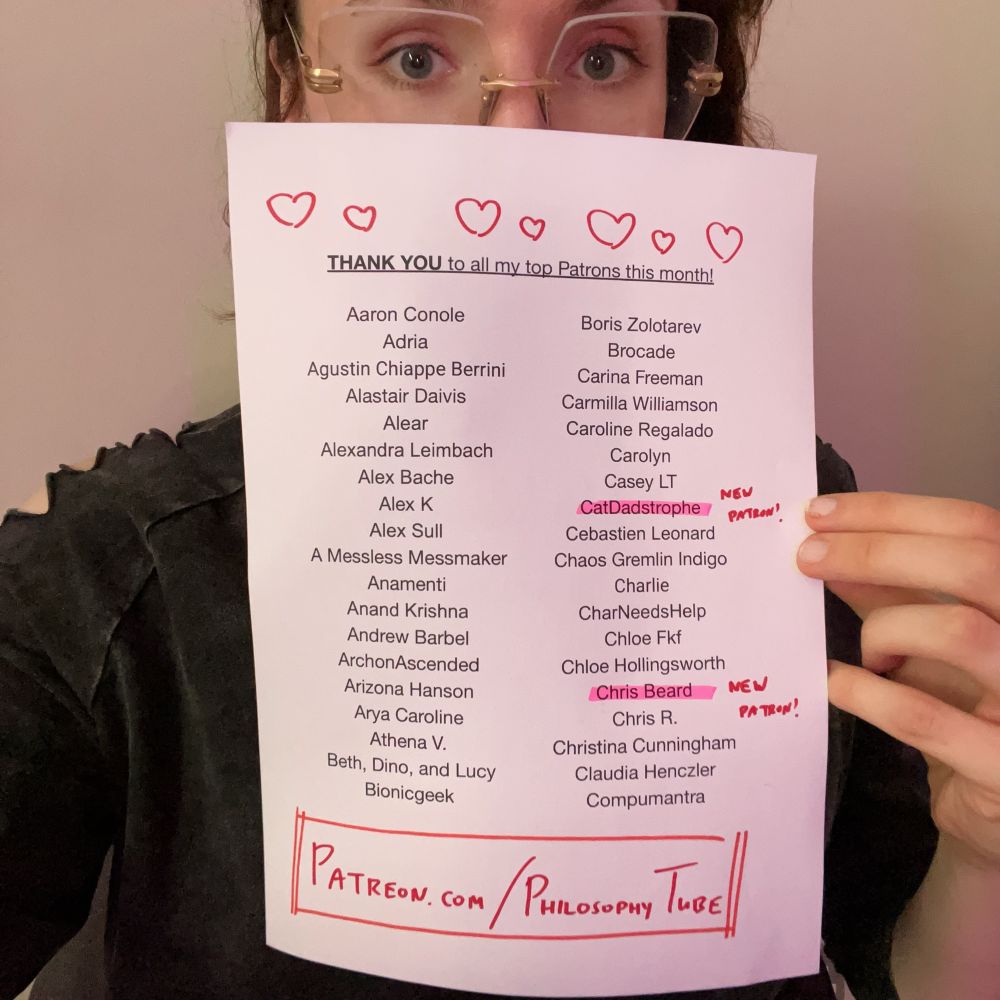 THANK YOU to all my top Patrons this month!
Aaron Conole
Adria
Agustin Chiappe Berrini
Alastair Daivis
Alear
Alexandra Leimbach
Alex Bache
Alex K
Alex Sull
A Messless Messmaker
Anamenti
Anand Krishna
Andrew Barbel
ArchonAscended
Arizona Hanson
Arya Caroline
Athena V.
Beth, Dino, and Lucy
Bionicgeek
Boris Zolotarev
Brocade
Carina Freeman
Carmilla Williamson
Caroline Regalado
Carolyn
Casey LT
CatDadstrophe NEW PATRON!
Cebastien Leonard
Chaos Gremlin Indigo
Charlie
CharNeedsHelp
Chloe Fkf
Chloe Hollingsworth
Chris Beard NEW PATRON!
Chris R.
Christina Cunningham
Claudia Henczler
Compumantra
PATREON.COM/PHILOSOPHY TUBE